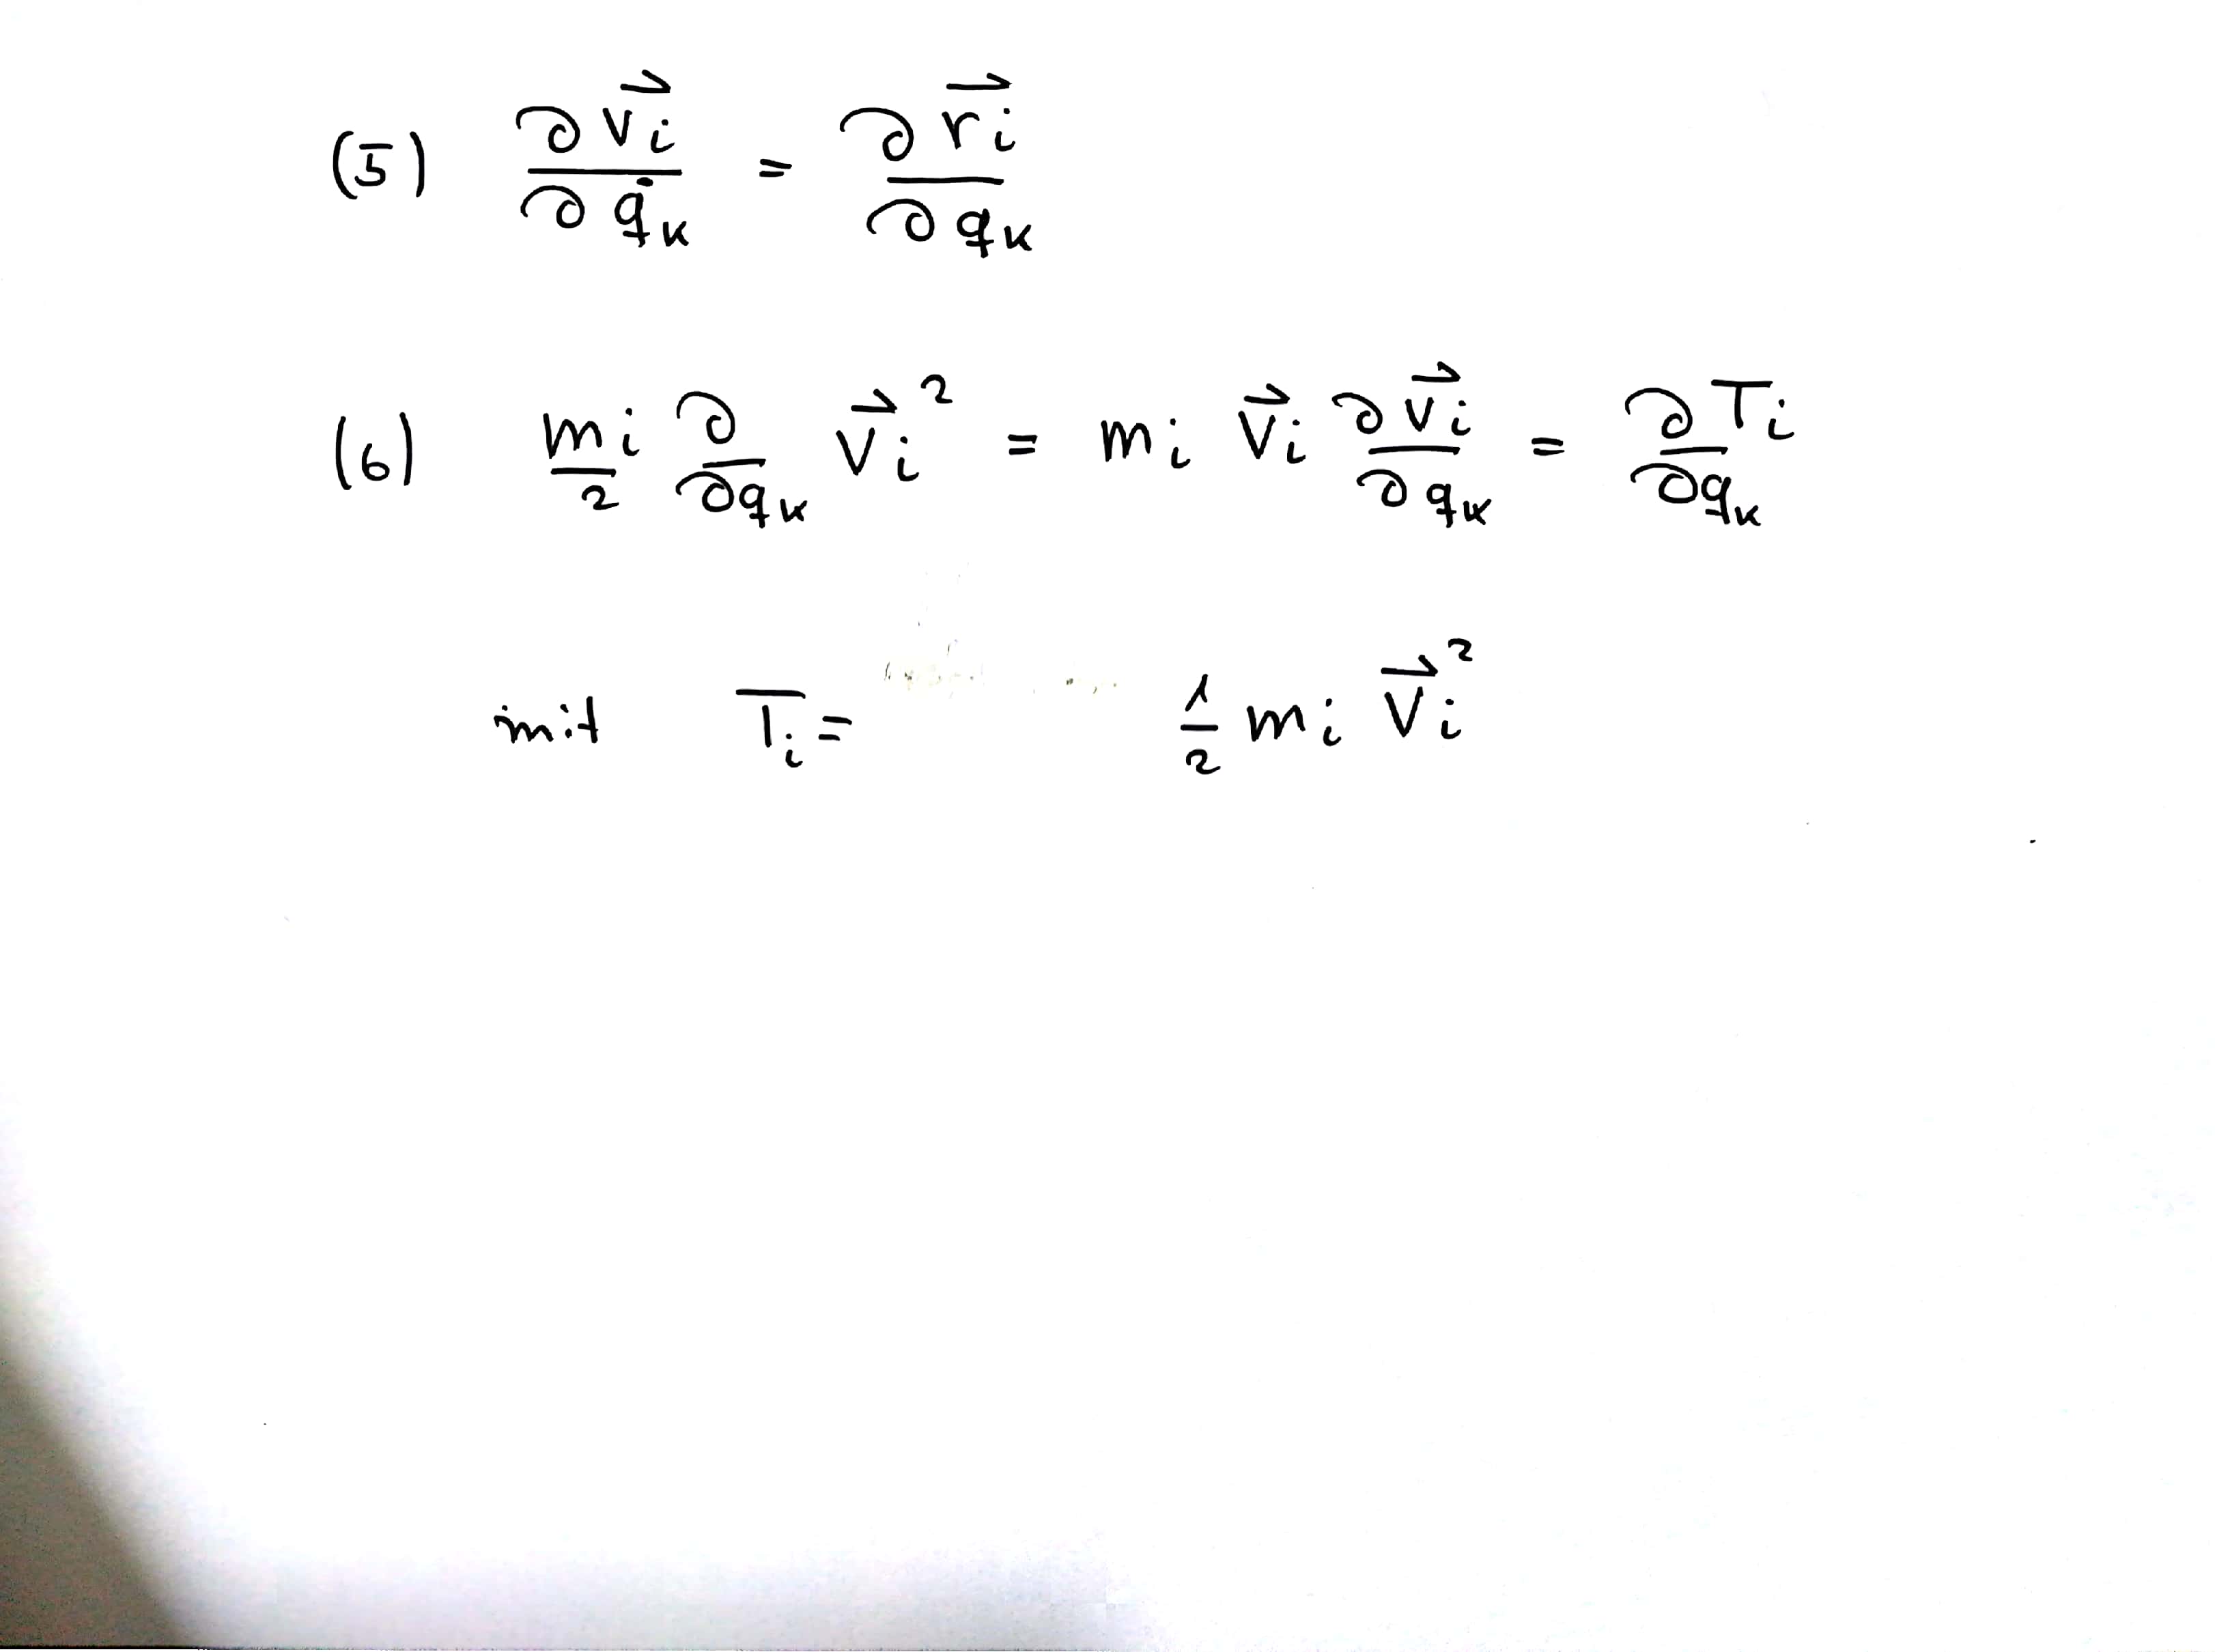 (5) ∂v⃗ᵢ/∂q̇ₖ = ∂r⃗ᵢ/∂qₖ
(6) mᵢ/2 ∂/∂qₖ v⃗ᵢ² = mᵢ v⃗ᵢ ∂v⃗ᵢ/∂qₖ = ∂Tᵢ/∂qₖ
mit Tᵢ = 1/2 mᵢ v⃗ᵢ²